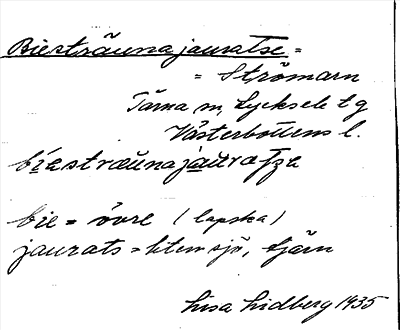 Biesträunajauratse =
= Strömarn
Tärna sn, Lycksele tg
Västerbottens l.
bíesträunajauratze
bie = övre (lapska)
jaurats = liten sjö, tjärn
Lisa Lidberg 1935